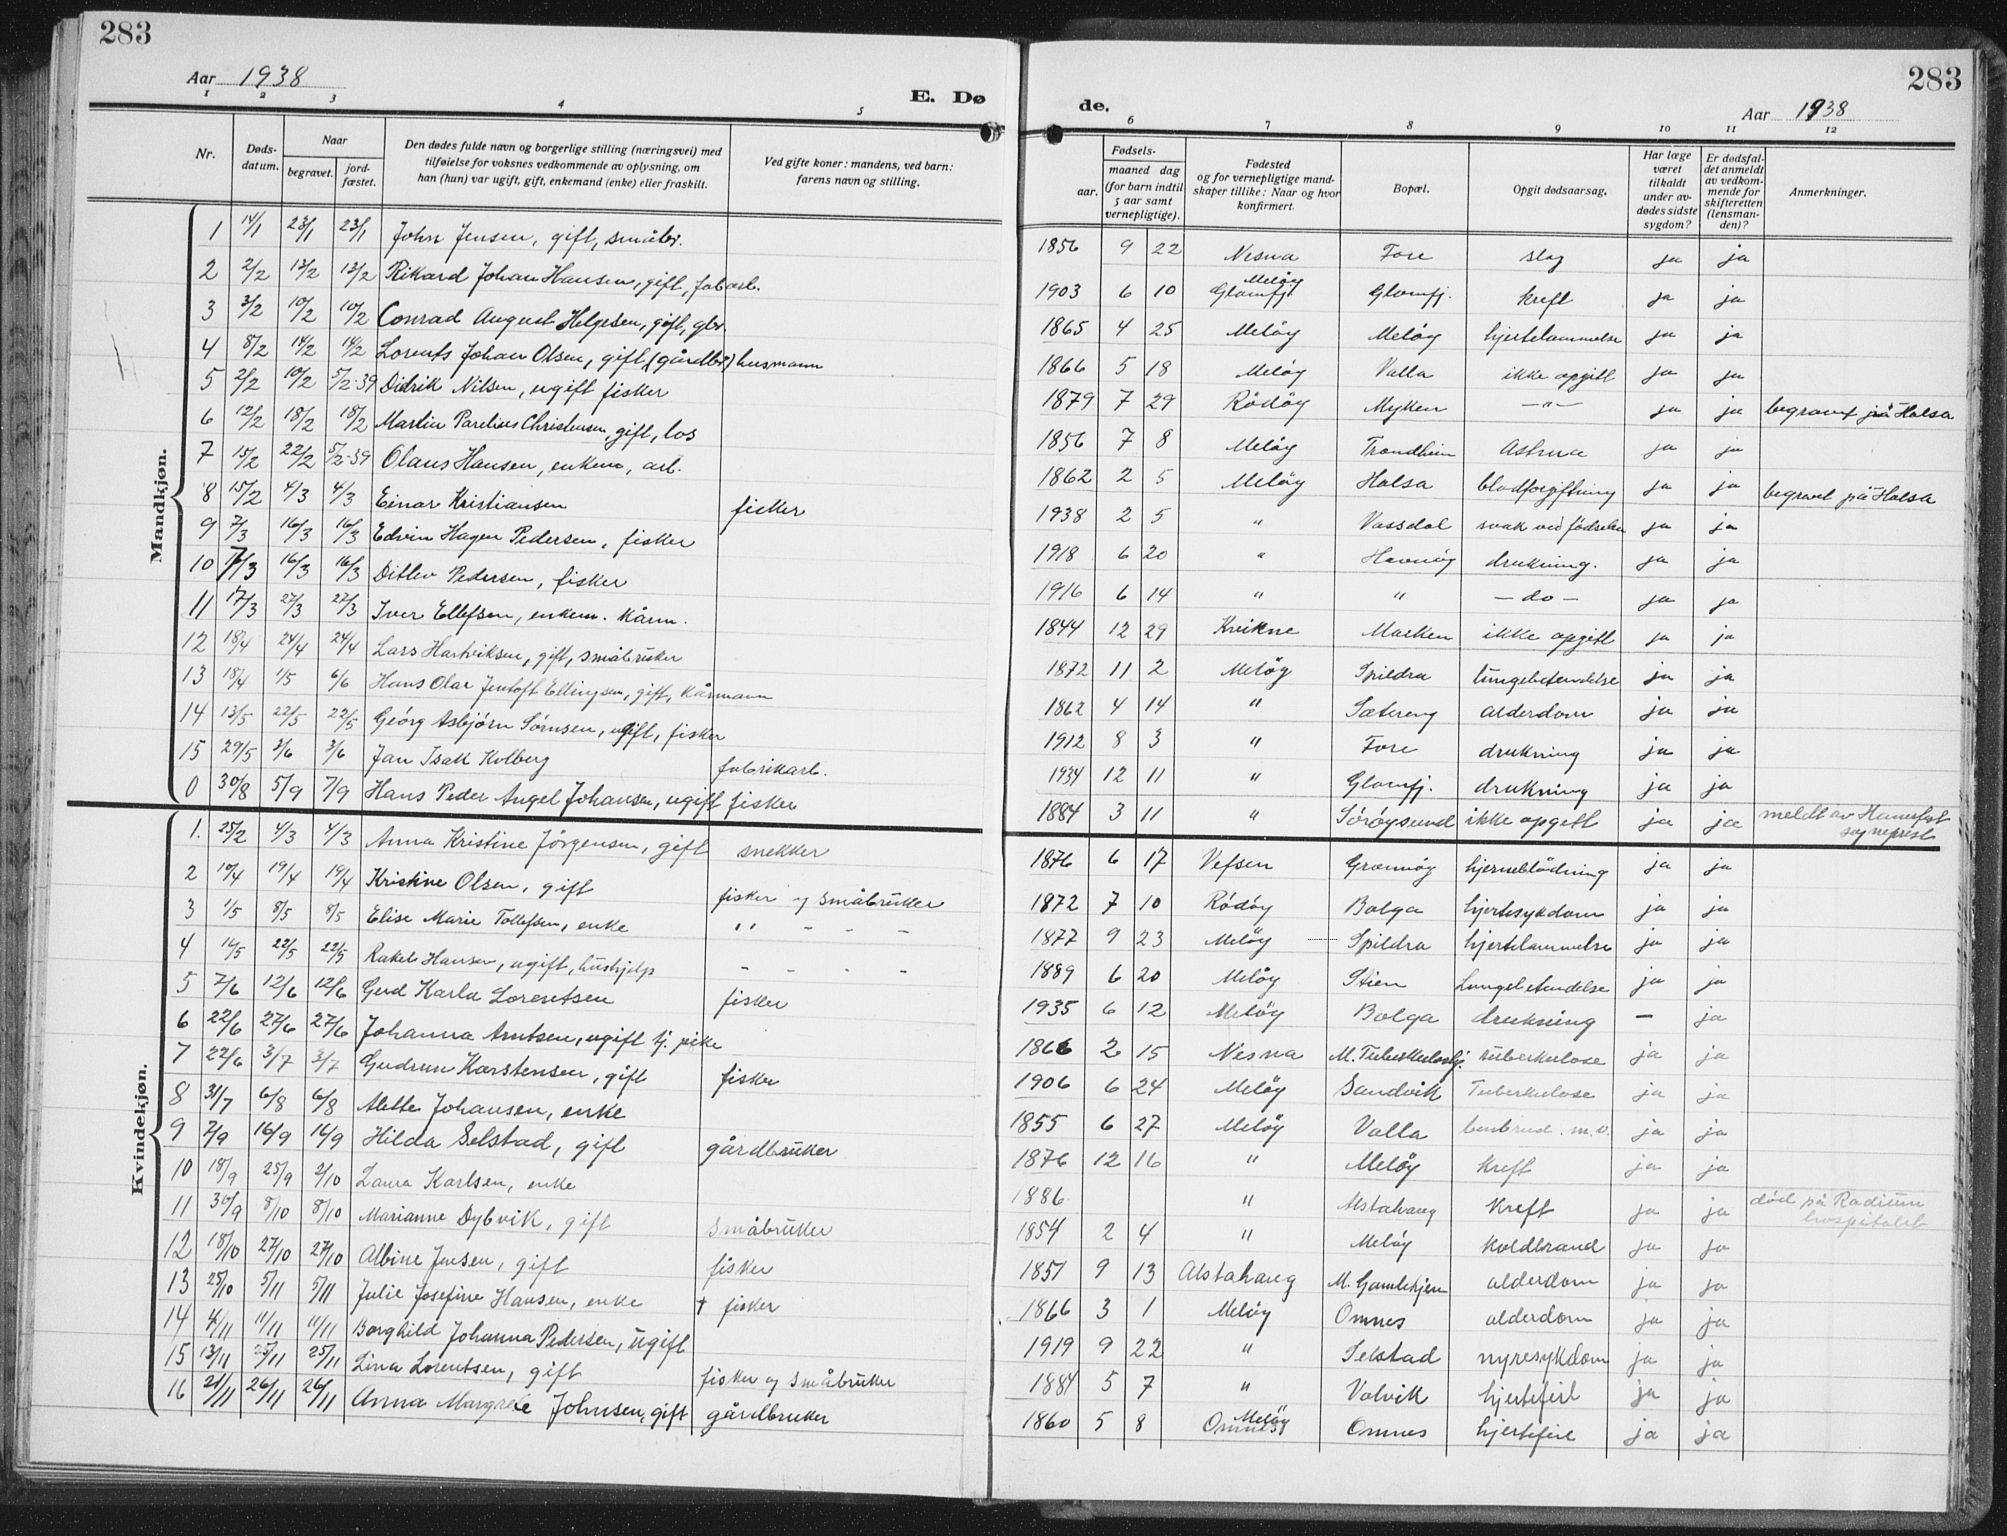 283
Aar 1938
E. Dø
1 2 3 4 5
Nr.
Døds-
datum.
Naar
begravet.
jord-
fæstet.
Den dødes fulde navn og borgerlige stilling (næringsvei) med
tilføielse for voksnes vedkommende av oplysning, om
han (hun) var ugift, gift, enkemand (enke) eller fraskilt.
Ved gifte koner: mandens, ved barn:
farens navn og stilling.
Mandkjøn.
1 14/1 23/1 23/1 John Jensen, gift, småbr.
2 2/2 13/2 13/2 Rikard Johan Hansen, gift, fabarb.
3 3/2 10/2 10/2 Conrad August Helgesen, gift, gbr.
4 8/2 14/2 14/2 Lorents Johan Olsen, gift, (gårdbr.) husmann
5 2/2 10/2 5/2-39 Didrik Nilsen, ugift fisker
6 12/2 18/2 18/2 Martin Parelius Christensen, gift, los
7 15/2 22/2 5/2-39 Olaus Hansen, enkem, arb.
8 15/2 4/3 4/3 Einar Kristiansen fisker
9 7/3 16/3 16/3 Edvin Hagen Pedersen, fisker
10 7/3 16/3 16/3 Ditlev Pedersen, fisker
11 17/3 27/3 27/3 Iver Ellefsen, enkem. kårm.
12 18/4 24/4 24/4 Lars Hartviksen, gift, småbruker
13 18/4 1/5 6/6 Hans Olai Jentoft Ellingsen, gift, kårmann
14 13/5 22/5 22/5 Georg Asbjørn Sørnsen, ugift, fisker
15 29/5 3/6 3/6 Jan Isak Kolberg fabrikarb.
0 30/8 5/9 7/9 Hans Peder Angel Johansen, ugift fisker
Kvindekjøn.
1. 25/2 4/3 4/3 Anna Kristine Jörgensen, gift snekker
2 10/4 19/4 19/4 Kristine Olsen, gift fisker og småbruker
3 1/5 8/5 8/5 Elise Marie Tollefsen, enke " - - -
4 16/5 22/5 22/5 Rakel Hansen, ugift, hushjelp - - - -
5 7/6 12/6 12/6 Gerd Karla Lorentsen fisker
6 22/6 27/6 27/6 Johanna Arntsen, ugift tj. pike
7 22/6 3/7 3/7 Gudrun Karstensen, gift fisker
8 31/7 6/8 6/8 Alette Johansen, enke
9 2/9 16/9 16/9 Hilda Selstad, gift gårdbruker
10 18/9 25/9 2/10 Laura Karlsen, enke
11 30/9 8/10 8/10 Marianne Dybvik, gift småbruker
12 18/10 27/10 27/10 Albine Jensen, gift fisker
13 25/10 5/11 5/11 Julie Josefine Hansen, enke † fisker
14 4/11 11/11 11/11 Borghild Johanna Pedersen, ugift
15 13/11 25/11 25/11 Lina Lorentsen, gift fisker og småbruker
16 21/11 26/11 26/11 Anna Margrete Johnsen, gift gårdbruker
283
de.
Aar 1938
6 7 8 9 10 11 12
Fødsels-
aar.
maaned dag
(for barn indtil
5 aar samt
vernepligtige).
Fødested
og for vernepligtige mand-
skaper tillike: Naar og hvor
konfirmert.
Bopæl.
Opgit dødsaarsag.
Har læge
været
tilkaldt
under av-
dødes sidste
sygdom?
Er dødsfal-
det anmeldt
av vedkom-
mende for
skifteretten
(lensman-
den)?
Anmerkninger.
1856 9 22 Nesna Fore slag ja ja
1903 6 10 Meløy Glomfj. Glomfj. kreft ja ja
1865 4 25 Meløy Meløy hjertelammelse ja ja
1866 5 18 Meløy Valla ikke opgitt ja ja
1879 7 29 Rödöy Myken — " — ja ja begravet på Halsa
1856 7 8 Meløy Trondheim Astma ja ja
1862 2 5 Meløy Halsa blodforgiftning ja ja begravet på Halsa
1938 2 5 " Vassdal svak ved fødselen ja ja
1918 6 20 " Havnöy drukning. ja ja
1916 6 14 " " — do — ja ja
1844 12 29 Kvikne Marken ikke opgitt ja ja
1872 11 2 Meløy Spildra lungebetendelse ja ja
1862 4 14 " Sætereng alderdom ja ja
1912 8 3 " Fore drukning ja ja
1934 12 11 " Glomfj. drukning ja ja
1884 3 11 " Söröysund ikke opgitt ja ja meldt av Hamerfest
sogneprest
1876 6 17 Vefsen Grønnöy hjerneblödning ja ja
1872 7 10 Rödöy Bolga hjertesykdom ja ja
1877 9 23 Meløy Spildra hjertelammelse ja ja
1889 6 20 Meløy Stien Lungebetendelse ja ja
1935 6 12 Meløy Bolga drukning — ja
1866 2 15 Nesna M. Tuberkulosehj. tuberkulose ja ja
1906 6 24 Meløy Sandvik Tuberkulose ja ja
1855 6 27 Meløy Valla benbrud. m.v. ja ja
1876 12 16 " Meløy kreft ja ja
1886 " Alstahaug kreft ja ja död på Radium
hospitalet
1854 2 4 " Meløy koldbrand ja ja
1851 9 13 Alstahaug M. Gamlehjem alderdom ja ja
1866 3 1 Meløy Omnes alderdom ja ja
1919 9 22 " Selstad nyresykdom ja ja
1884 5 7 " Valvik hjertefeil ja ja
1860 5 8 Meløy Omnes Omnes hjertefeil ja ja